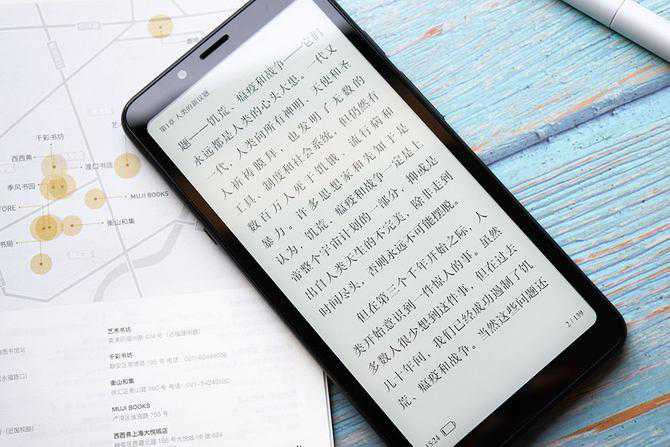 千彩书坊
西西弗
渡口书店
季风书园
MUJI BOOKS
TORE
衡山和集
书局
艺术书坊
千彩书坊
衡山和集
MUJI BOOKS
西西弗上海大悦城店
第1章 人类的新议题
题——饥荒、瘟疫和战争——它们
永远都是人类的心头大患。一代又
一代，人类向所有神明、天使和圣
人祈祷膜拜，也发明了无数的
工具、制度和社会系统，但仍然有
数百万人死于饥饿、流行病和
暴力。许多思想家和先知于是
认为，饥荒、瘟疫和战争一定是上
帝整个宇宙计划的一部分，抑或是
出自人类天生的不完美，除非走到
时间尽头，否则永远不可能摆脱。
但在第三个千年开始之际，人
类开始意识到一件惊人的事。虽然
多数人很少想到这件事，但在过去
几十年间，我们已经成功遏制了饥
荒、瘟疫和战争。当然这些问题还
2 / 139